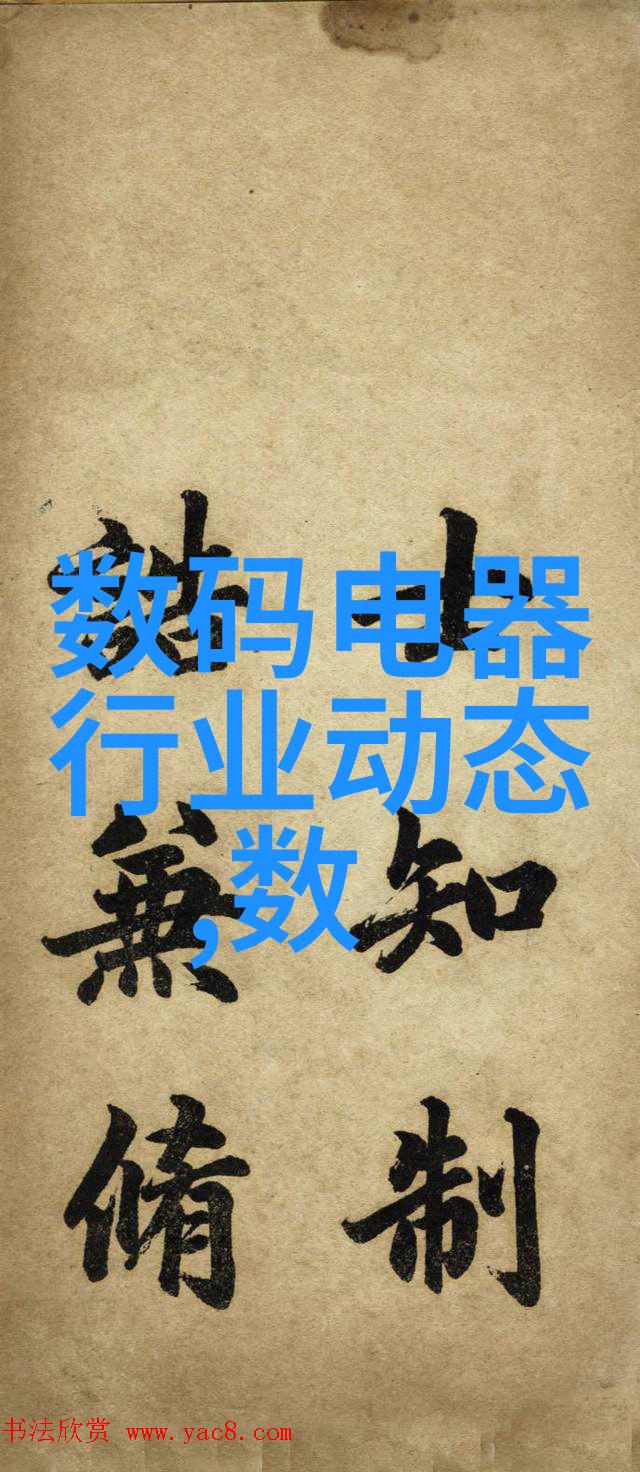 数码电器
行业动态
,数
士知制
誥兼脩
书法欣赏 www.yac8.com